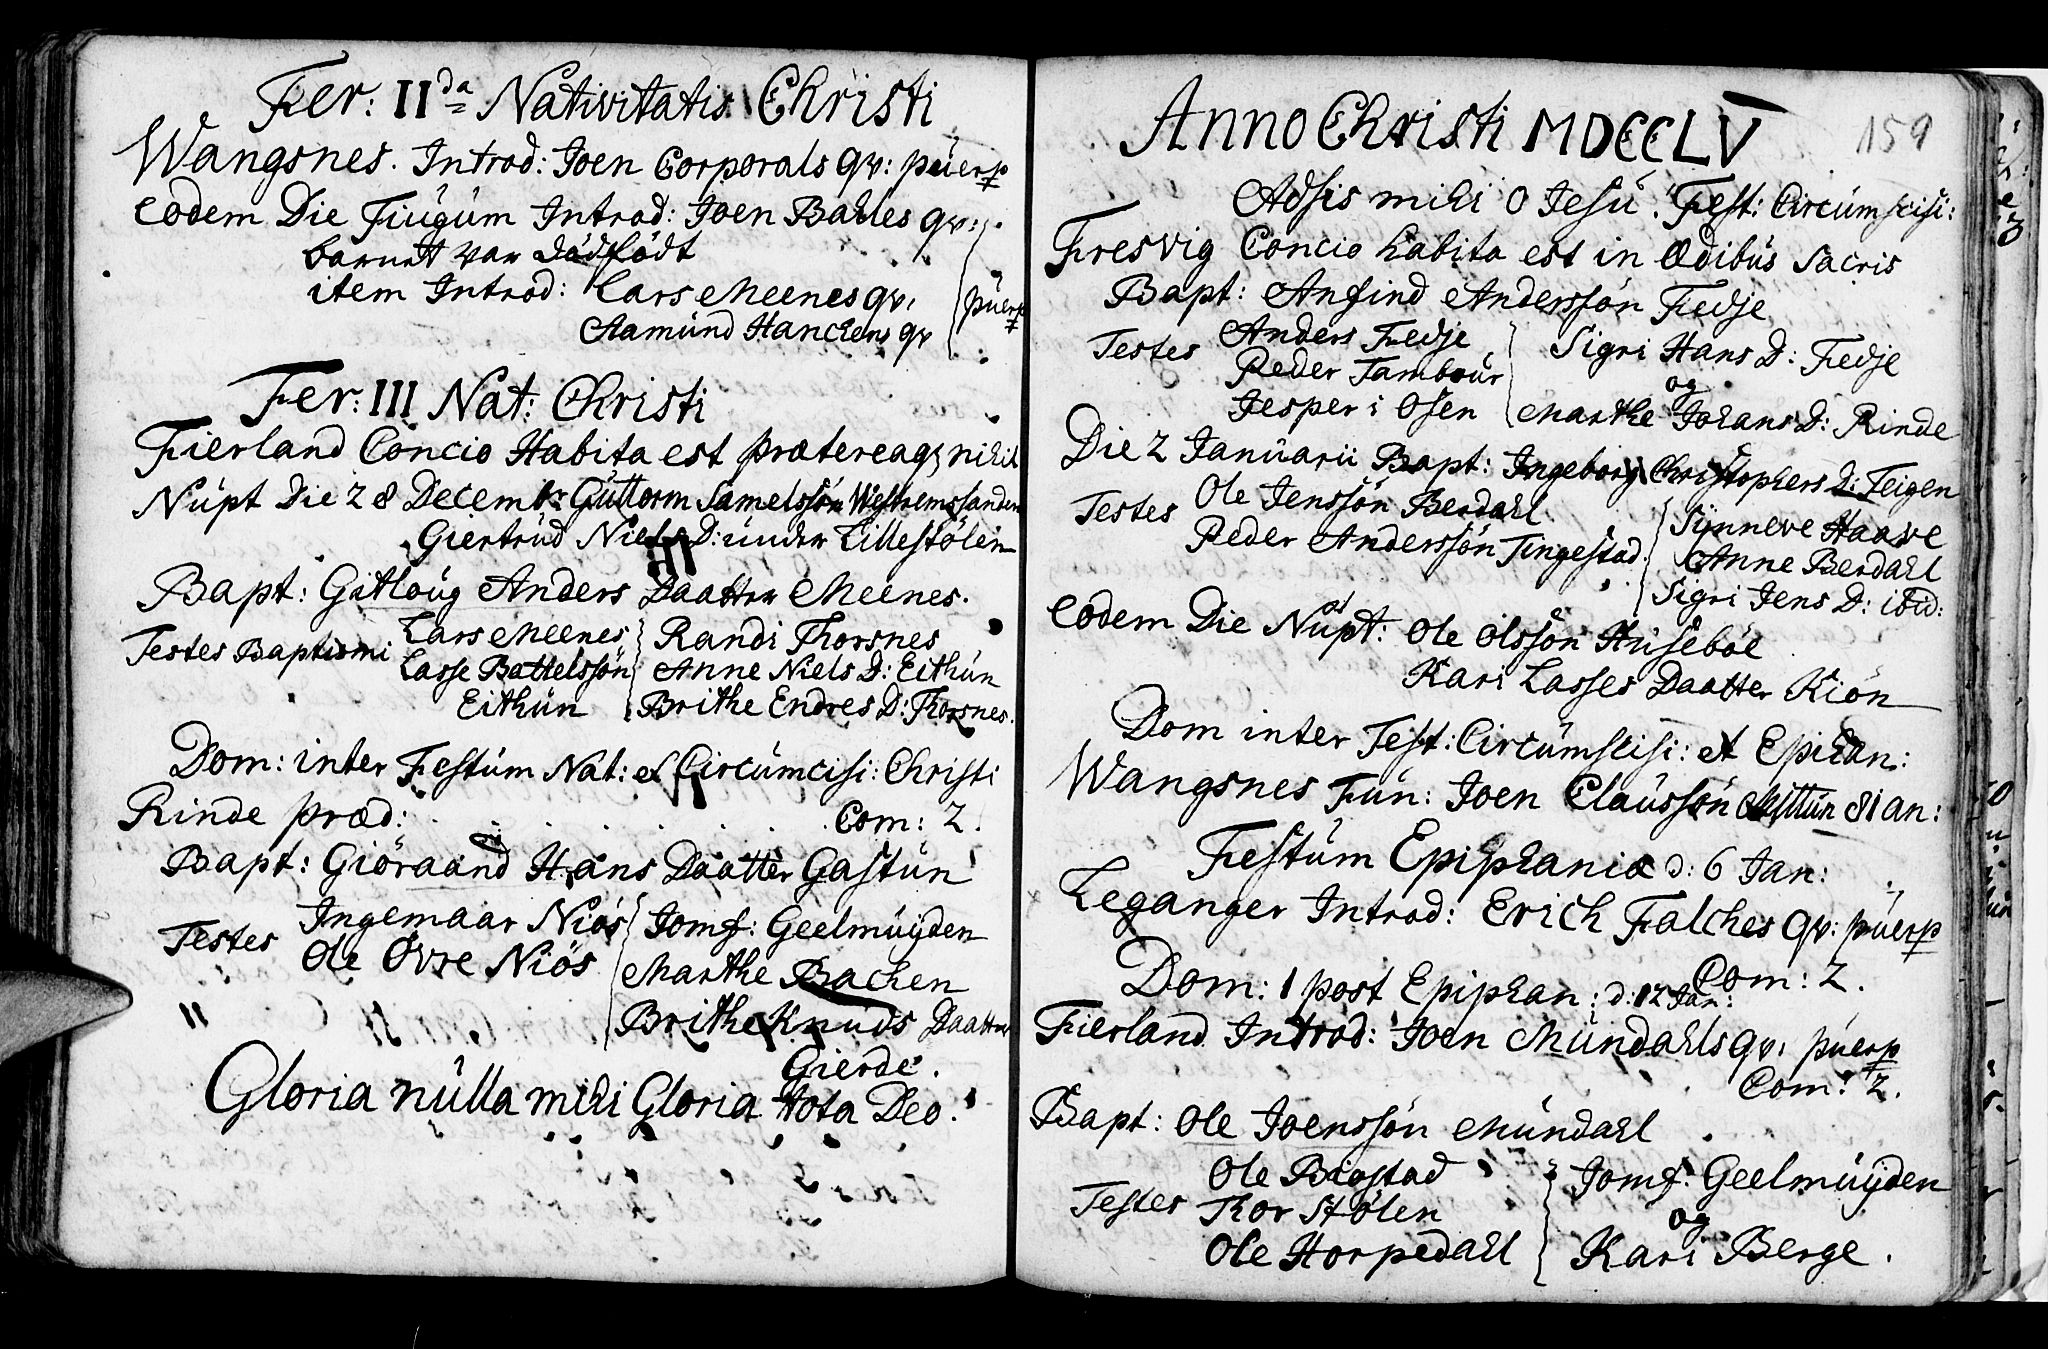 Fer: II da Nativitatis Christi
Wangsnes. Introd: Joen Corporals qv: puerp
Eodem Die Fiugum Introd: Joen Bahles qv:
barnet var dødfødt
item Introd: Lars Meenes qv:
Aamund Hanchens qv
puerp
Fer: III Nat: Christi
Fierland Concio Habita est prætereaq; nihil
Nupt Die 28 Decembr Guttorm Samelssøn
Giertrud Niels D: under Lillestølen
Bapt: Gitloug Anders Daatter Meenes.
Testes Baptismi Lars Meenes Randi Thorsnes
Lasse Battelssøn Anne Niels D: Eithun
Eithun Brithe Endres D: Thorsnes.
Dom: inter Festum Nat: et Circumcisi: Christi
Rinde præd: Com: 2.
Bapt: Giøraand Hans Daatter Gastun
Testes Ingemaar Niøs Jomf: Geelmuyden
Ole Øvre Niøs Marthe Bachen
Brithe Knuds Daatter
Gierde.
Gloria nulla mihi Gloria tota Deo.
Anno Christi MDCCLV
159
Adsis mihi O Jesu! Fest: Circumscisi:
Fresvig Concio habita est in Ædibus Sacris
Bapt: Anfind Anderssøn Fedje
Testes Anders Fedje Sigri Hans D: Fedje
Peder Tambour og
Jesper i Osen Marthe Johans D: Rinde
Die 2 Januarii Bapt: Ingeborg Christophers D: Feigen
Testes Ole Jenssøn Berdahl Synneve Haave
Peder Anderssøn Tingestad Anne Berdahl
Sigri Jens D: ibid:
Eodem Die Nupt: Ole Olssøn Husebøe
Kari Lasses Daatter Kiøn
Dom inter Fest: Circumscisi: et Epiphan:
Wangsnes Fun: Joen Claussøn Mittun 81 an:
Festum Epiphaniæ d: 6 Jan:
Leganger Introd: Erich Falches qv: puerp
Com: 2.
Dom: 1 post Epiphan: d: 12 Jan:
Fierland Introd: Joen Mundahls qv: puerp
Com: 2.
Bapt: Ole Joenssøn Mundahl
Testes Ole Bigstad Jomf: Geelmuyden
Thor Stølen og
Ole Horpedahl Kari Berge.